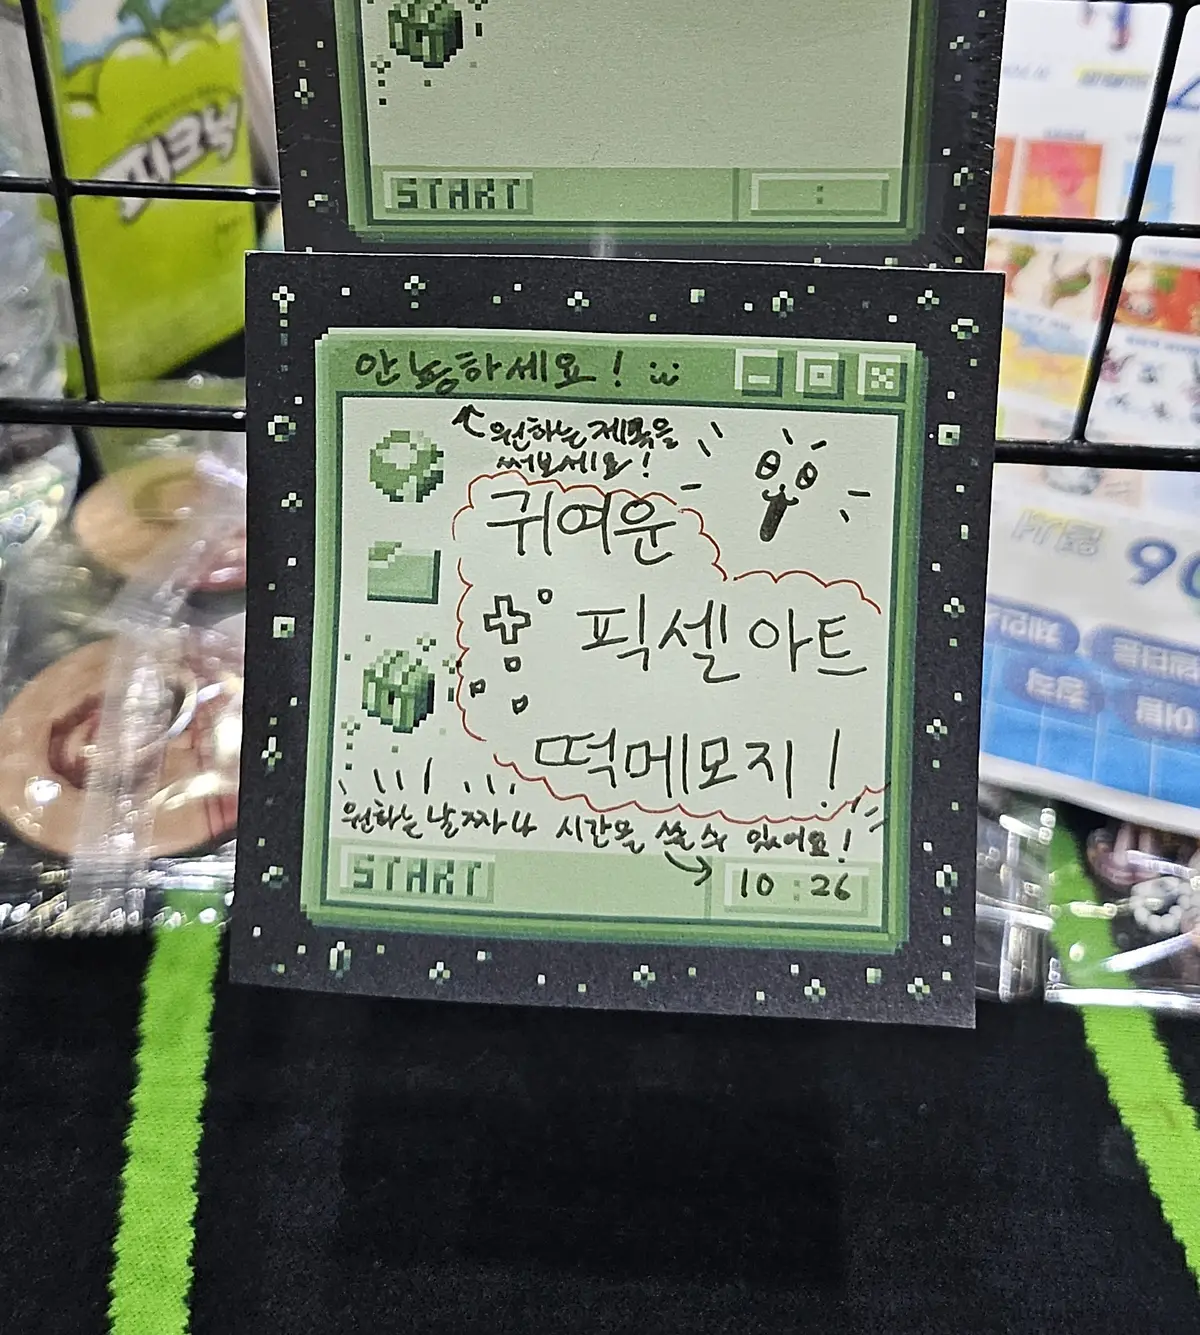 START
:
안뇽하세요!
원하는 제목을
써보세요!
귀여운
픽셀아트
떡메모지!
원하는 날짜나 시간을 쓸 수 있어요!
START
10 : 26